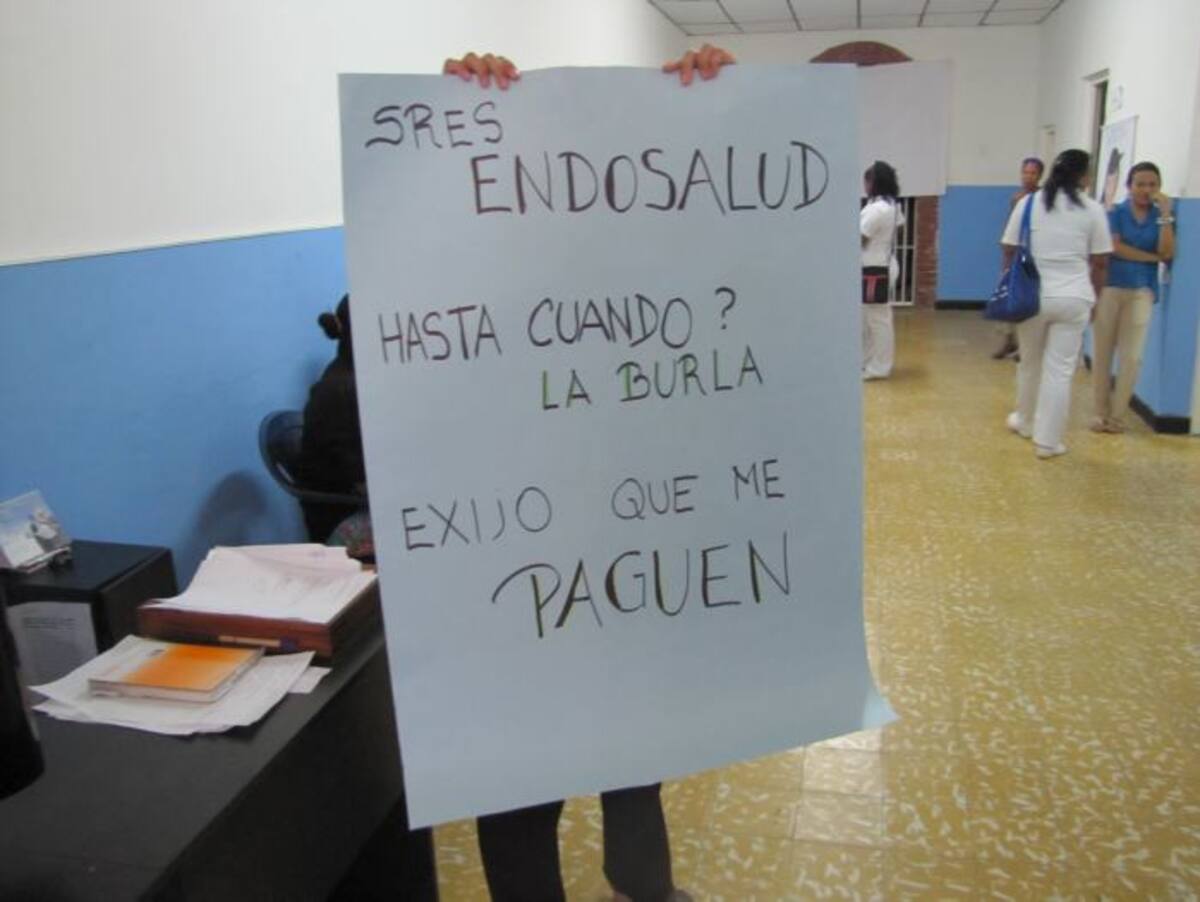 SRES
ENDOSALUD
HASTA CUANDO ?
LA BURLA
EXIJO QUE ME
PAGUEN